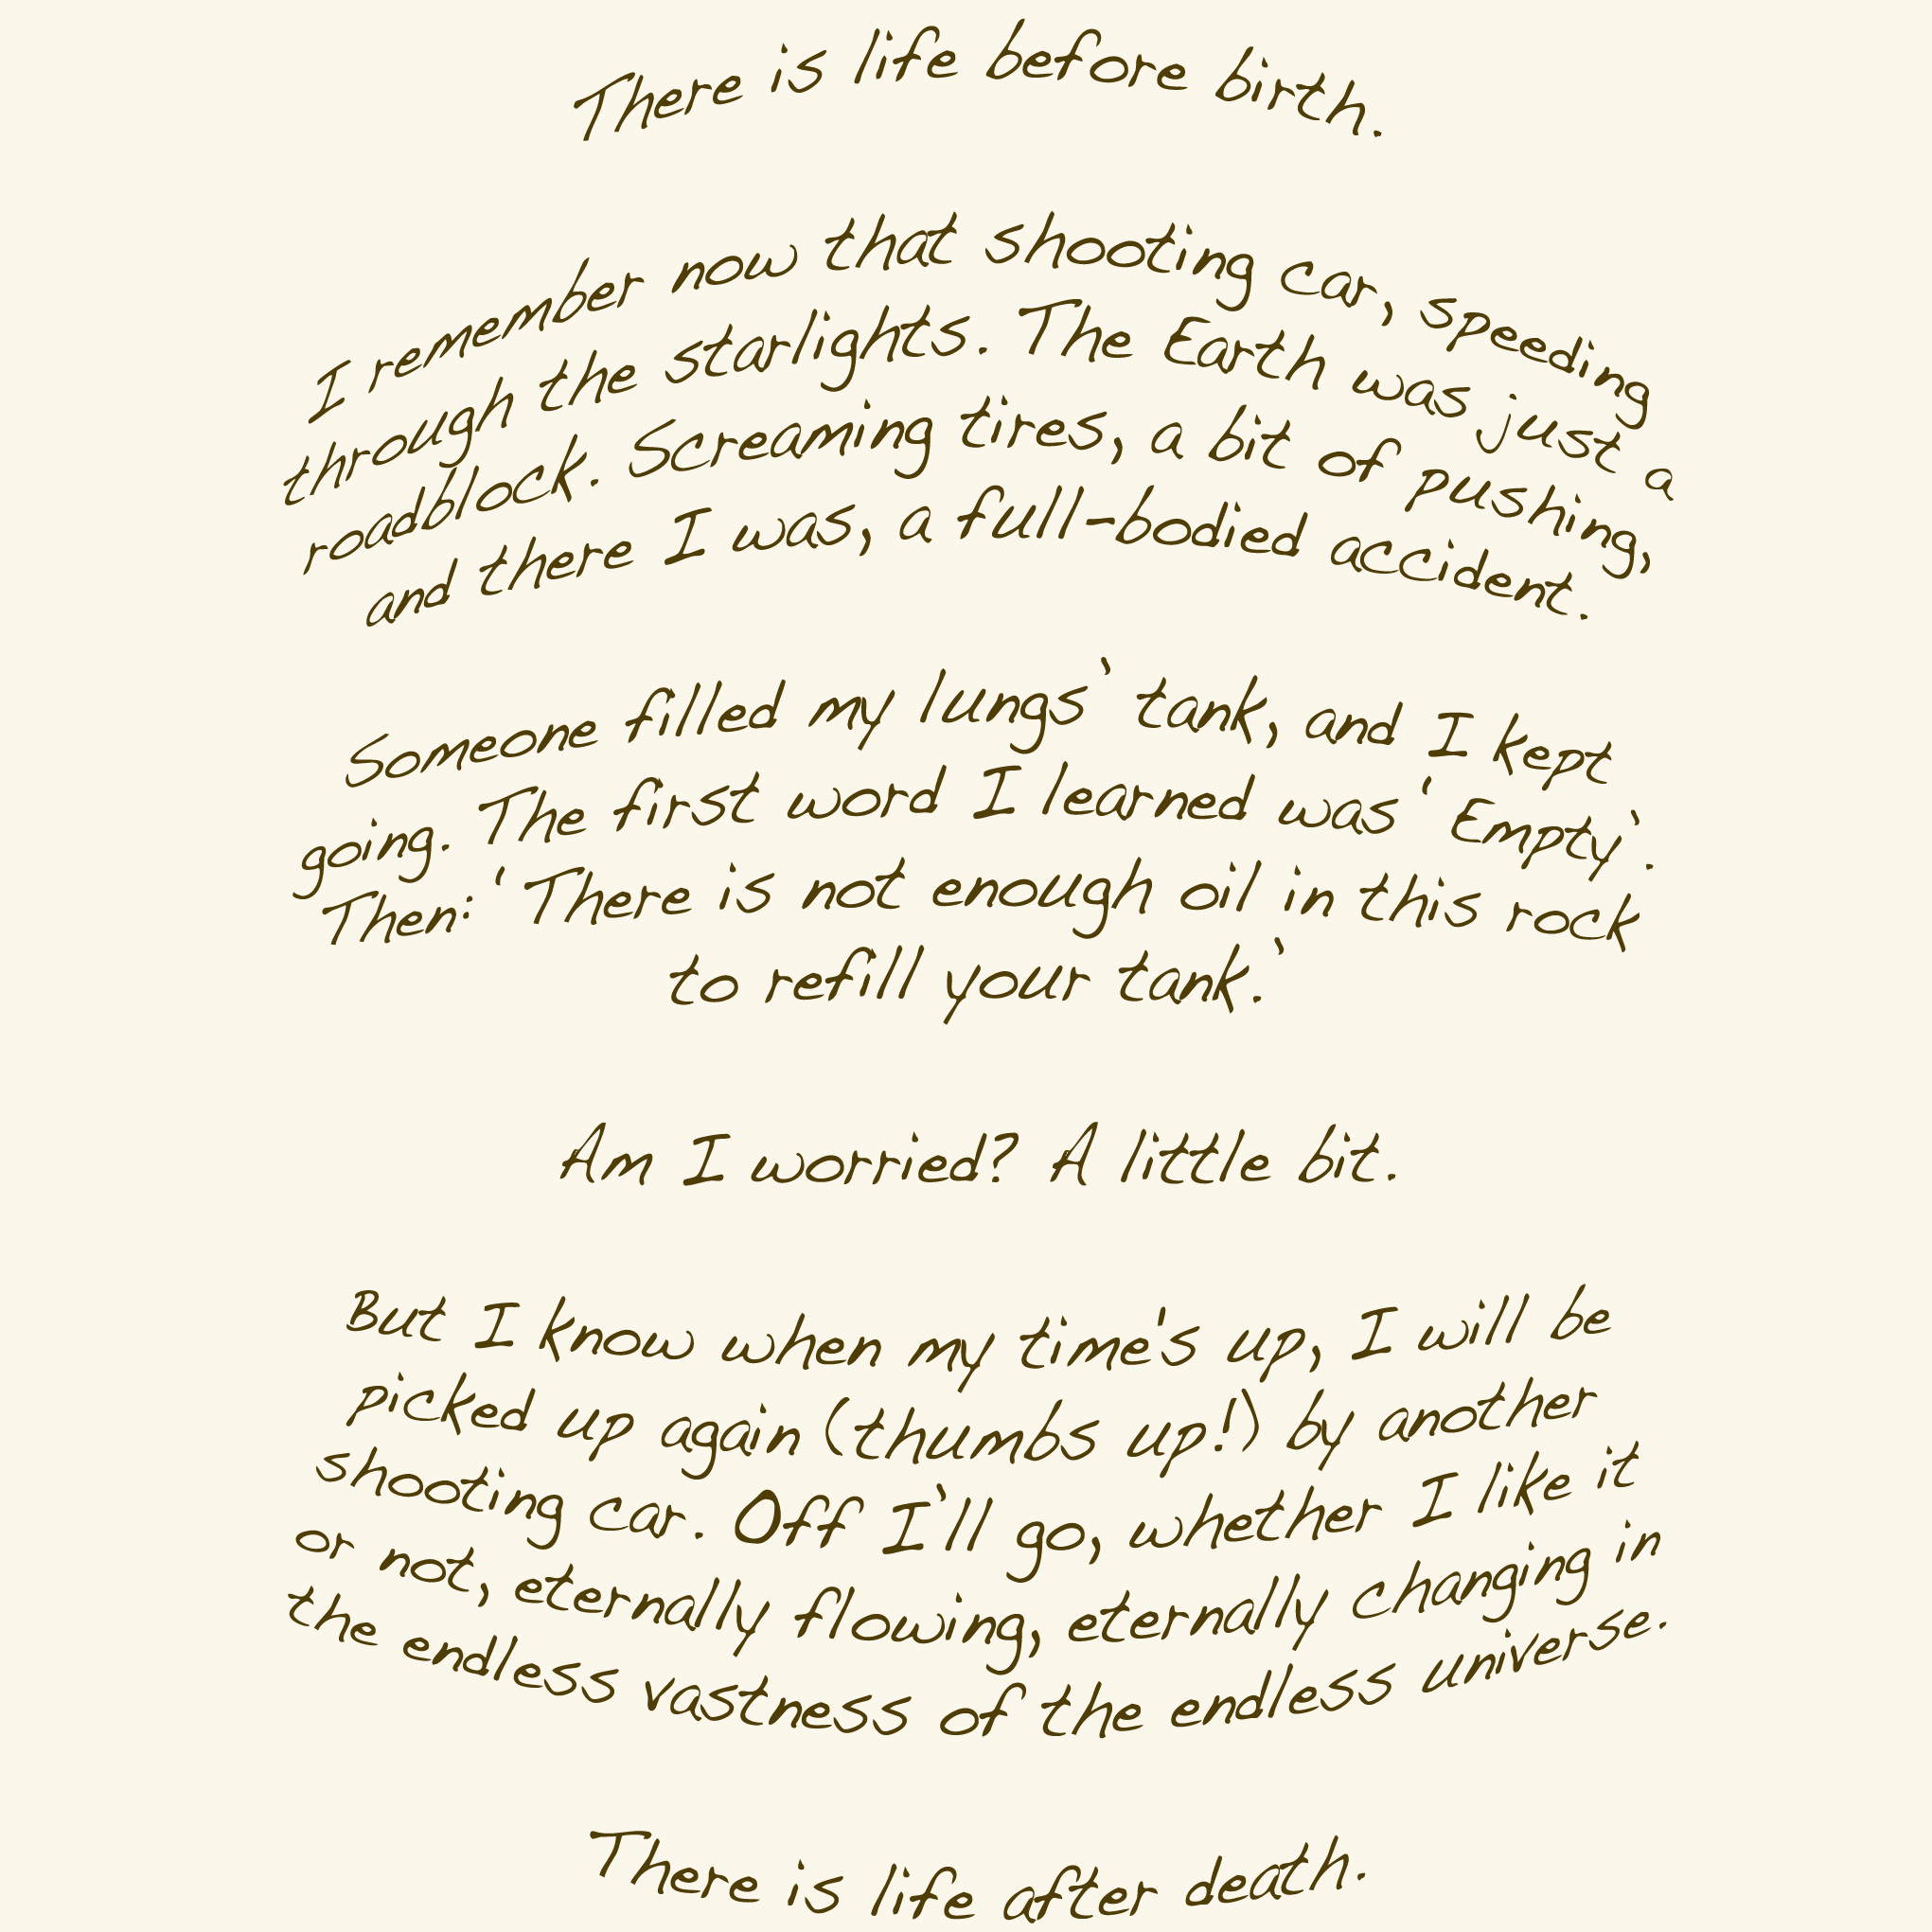 There is life before birth.
I remember now that shooting car, speeding
through the starlights. The Earth was just a
roadblock. Screaming tires, a bit of pushing,
and there I was, a full-bodied accident.
Someone filled my lungs' tank, and I kept
going. The first word I learned was 'Empty'.
Then: 'There is not enough oil in this rock
to refill your tank.'
Am I worried? A little bit.
But I know when my time's up, I will be
picked up again (thumbs up!) by another
shooting car. Off I'll go, whether I like it
or not, eternally flowing, eternally changing in
the endless vastness of the endless universe.
There is life after death.